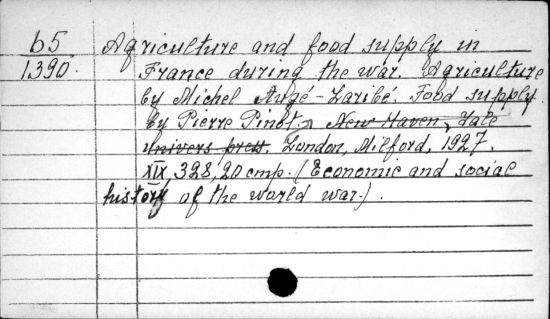 b5 Agriculture and food supply in
1390. France during the war. Agriculture
by Michel Augé-Laribé. Food supply
by Pierre Pinot, New Haven, Yale
Univers press. London, Milford, 1927.
XIX, 328, 20 cmp. (Economic and social
history of the world war.).